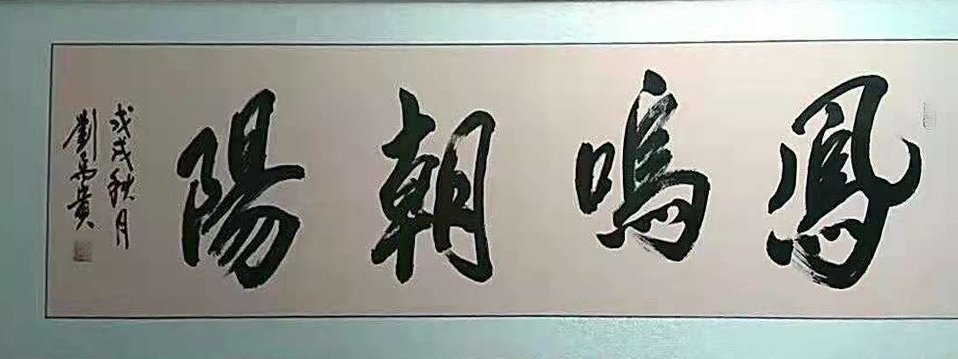 鳳鳴朝陽
戊戌秋月
劉禹貴